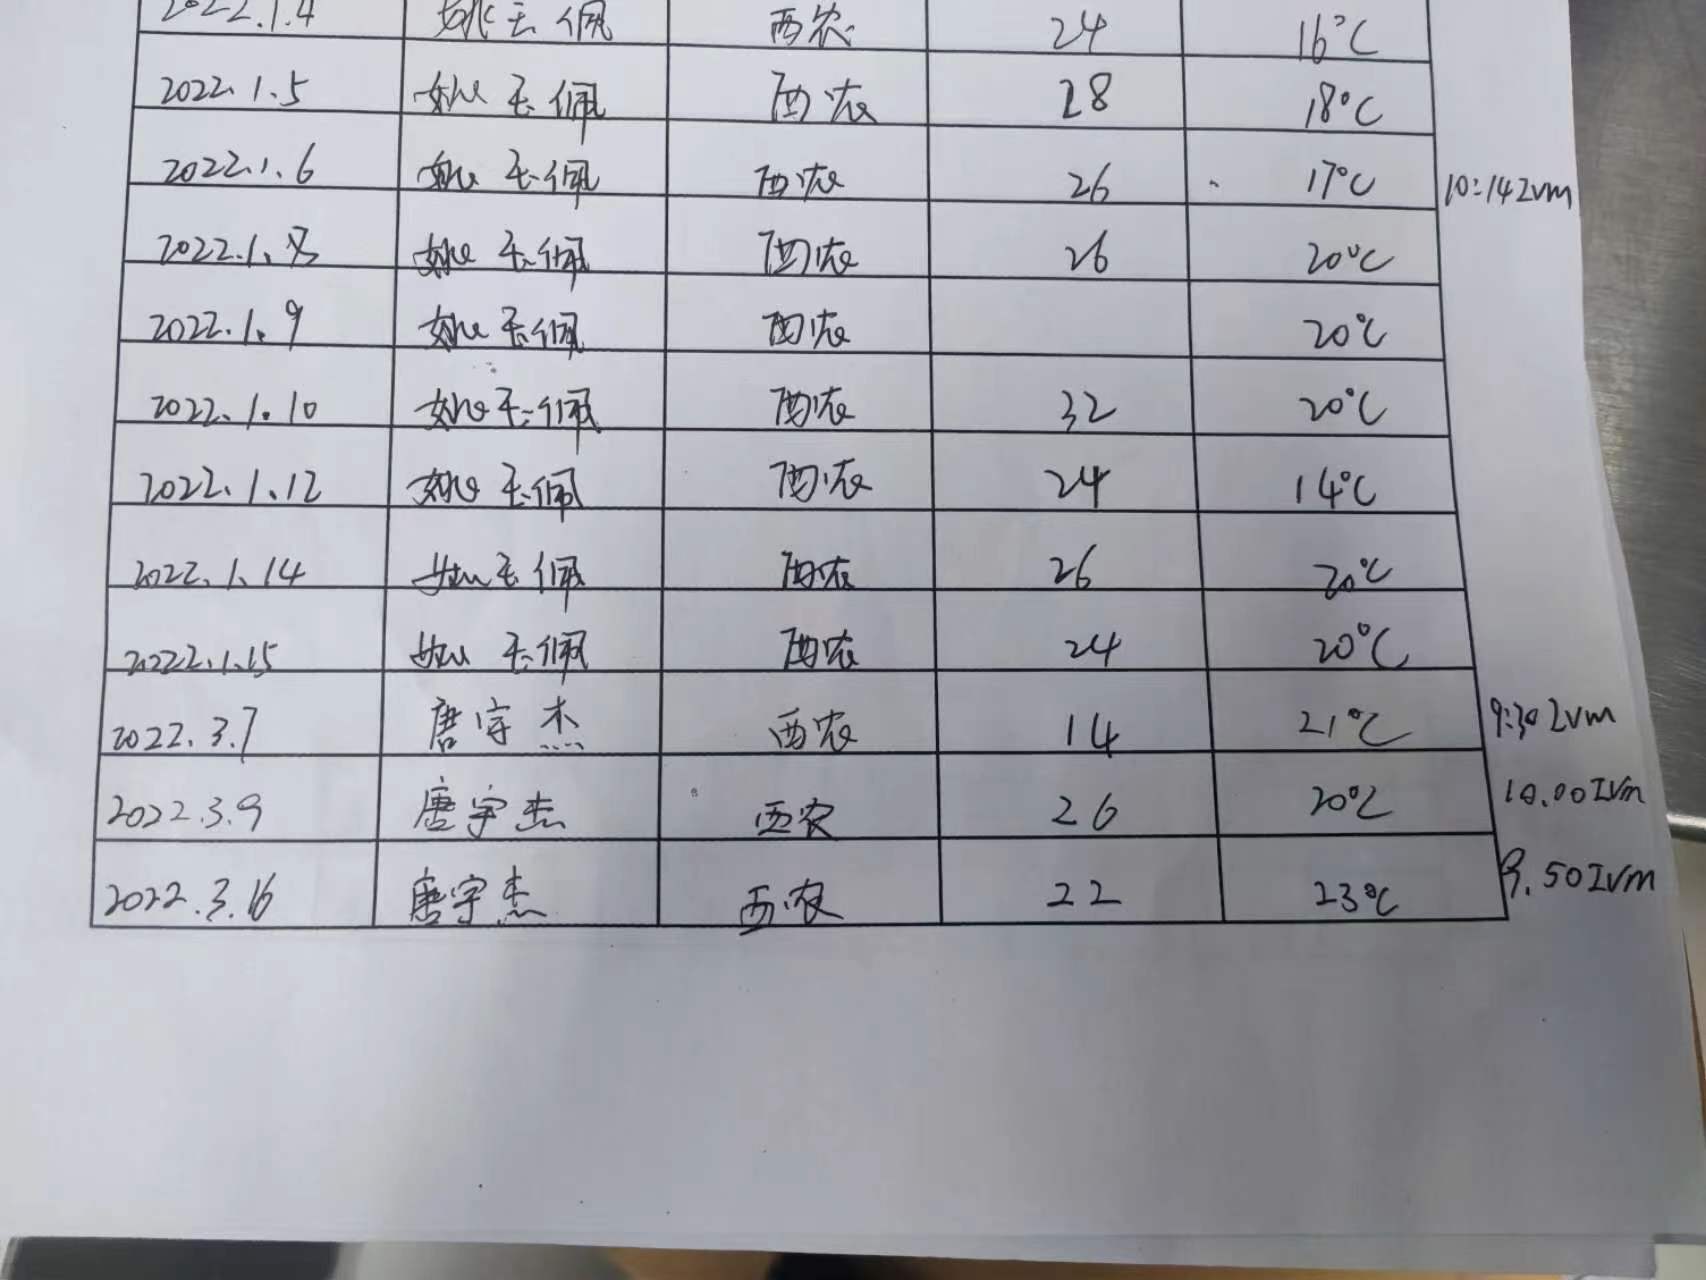 2022.1.4 姚玉佩 西农 24 16℃
2022.1.5 姚玉佩 西农 28 18℃
2022.1.6 姚玉佩 西农 26 17℃ 10:14 Ivm
2022.1. 姚玉佩 西农 26 20℃
2022.1.9 姚玉佩 西农 20℃
2022.1.10 姚玉佩 西农 32 20℃
2022.1.12 姚玉佩 西农 24 14℃
2022.1.14 姚玉佩 西农 26 20℃
2022.1.15 姚玉佩 西农 24 20℃
2022.3.7 唐宇杰 西农 14 21℃ 9:30 Ivm
2022.3.9 唐宇杰 西农 26 20℃ 10.00 Ivm
2022.3.16 唐宇杰 西农 22 23℃ 9.50 Ivm